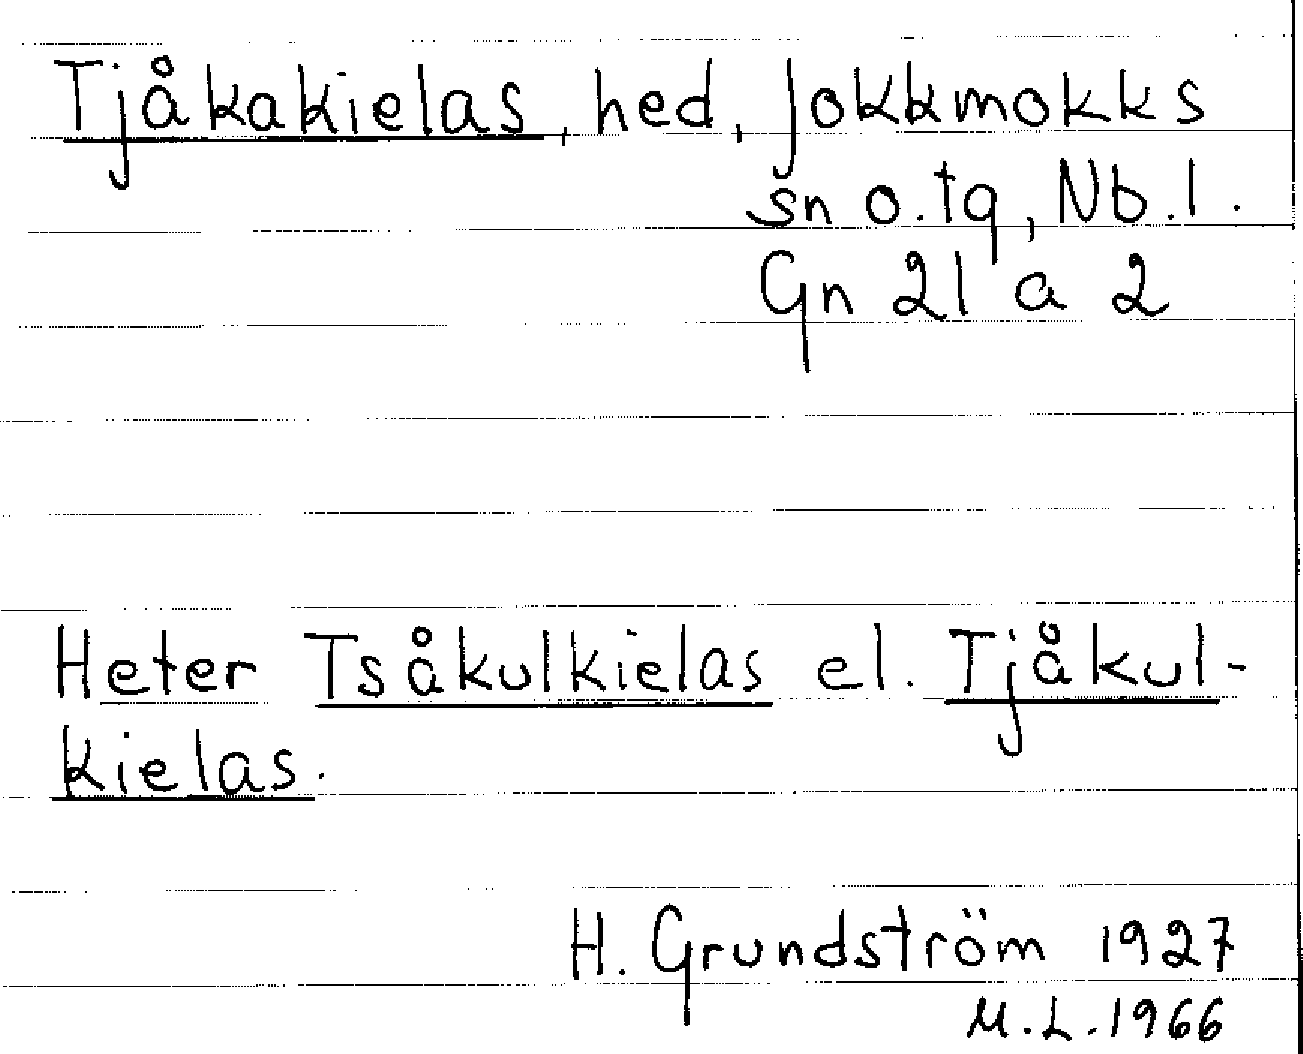 Tjåkakielas, hed, Jokkmokks
sn o. tg, Nb. l.
Gn 21 a 2
Heter Tsåkulkielas el. Tjåkul-
kielas.
H. Grundström 1927
M.L. 1966